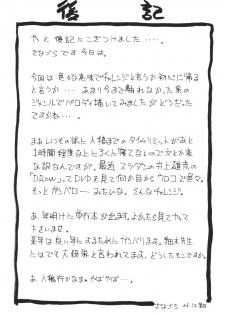 後記
やっと後記にこぎつけました‥‥。
さなづらです今日は。
今回は色々な意味でチャレンジと言うか初心に帰る
と言うか‥‥ あまり今まで触れなかった系の
ジャンルでパロディ描いてみましたがどうだった
ですかね‥‥。
まぁいつもの様に入稿までのタイムリミットがあと
1時間程度な上にろくに寝てないので
な訳なんですが。最近スラダンの井上雄彦の
「DRAW」ってDVDを見て何か目からウロコで色々
もっとガンバローみたいな。そんなチャレンジ。
あ、年明けに単行本が出ます。よかったら見てやって
下さいませ。
来年は良い年にするためにガンバリます。翔木先生
たちはでも大殺界と言われてます。どうしたもんですか。
あ、入稿行かなきゃ。やばやば‥‥。
さなづら